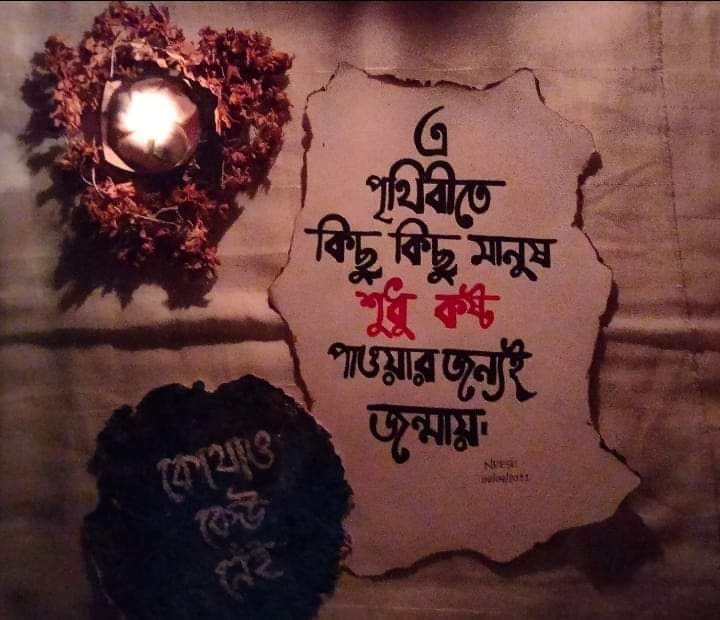 এ
পৃথিবীতে
কিছু কিছু মানুষ
শুধু কষ্ট
পাওয়ার জন্যই
জন্মায়।
কোথাও
কেউ
নেই